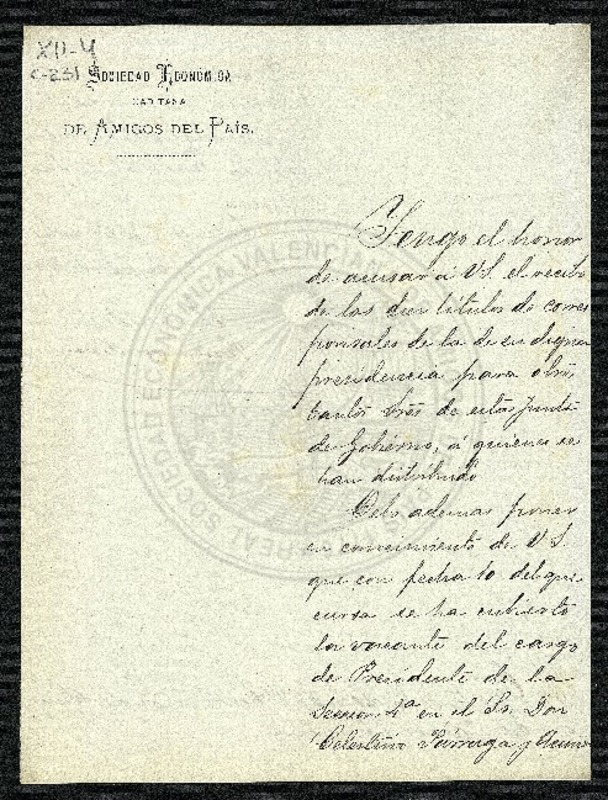 XII-4
C-231
SOCIEDAD ECONÓMICA
GADITANA
DE AMIGOS DEL PAÍS.
Tengo el honor
de acusar á V.S. el recibo
de los diez titulos de corres
ponsales de la de su digna
presidencia para otros
tantos Sres de esta Junta
de Gobierno, á quienes se
han distribuido
Debo ademas poner
en conocimiento de V.S.
que con fecha 10 del que
cursa se ha cubierto
la vacante del cargo
de Presidente de la
Seccion 4ª en el Sr. Don
Celestino Párraga y
REAL SOCIEDAD ECONÓMICA VALENCIANA